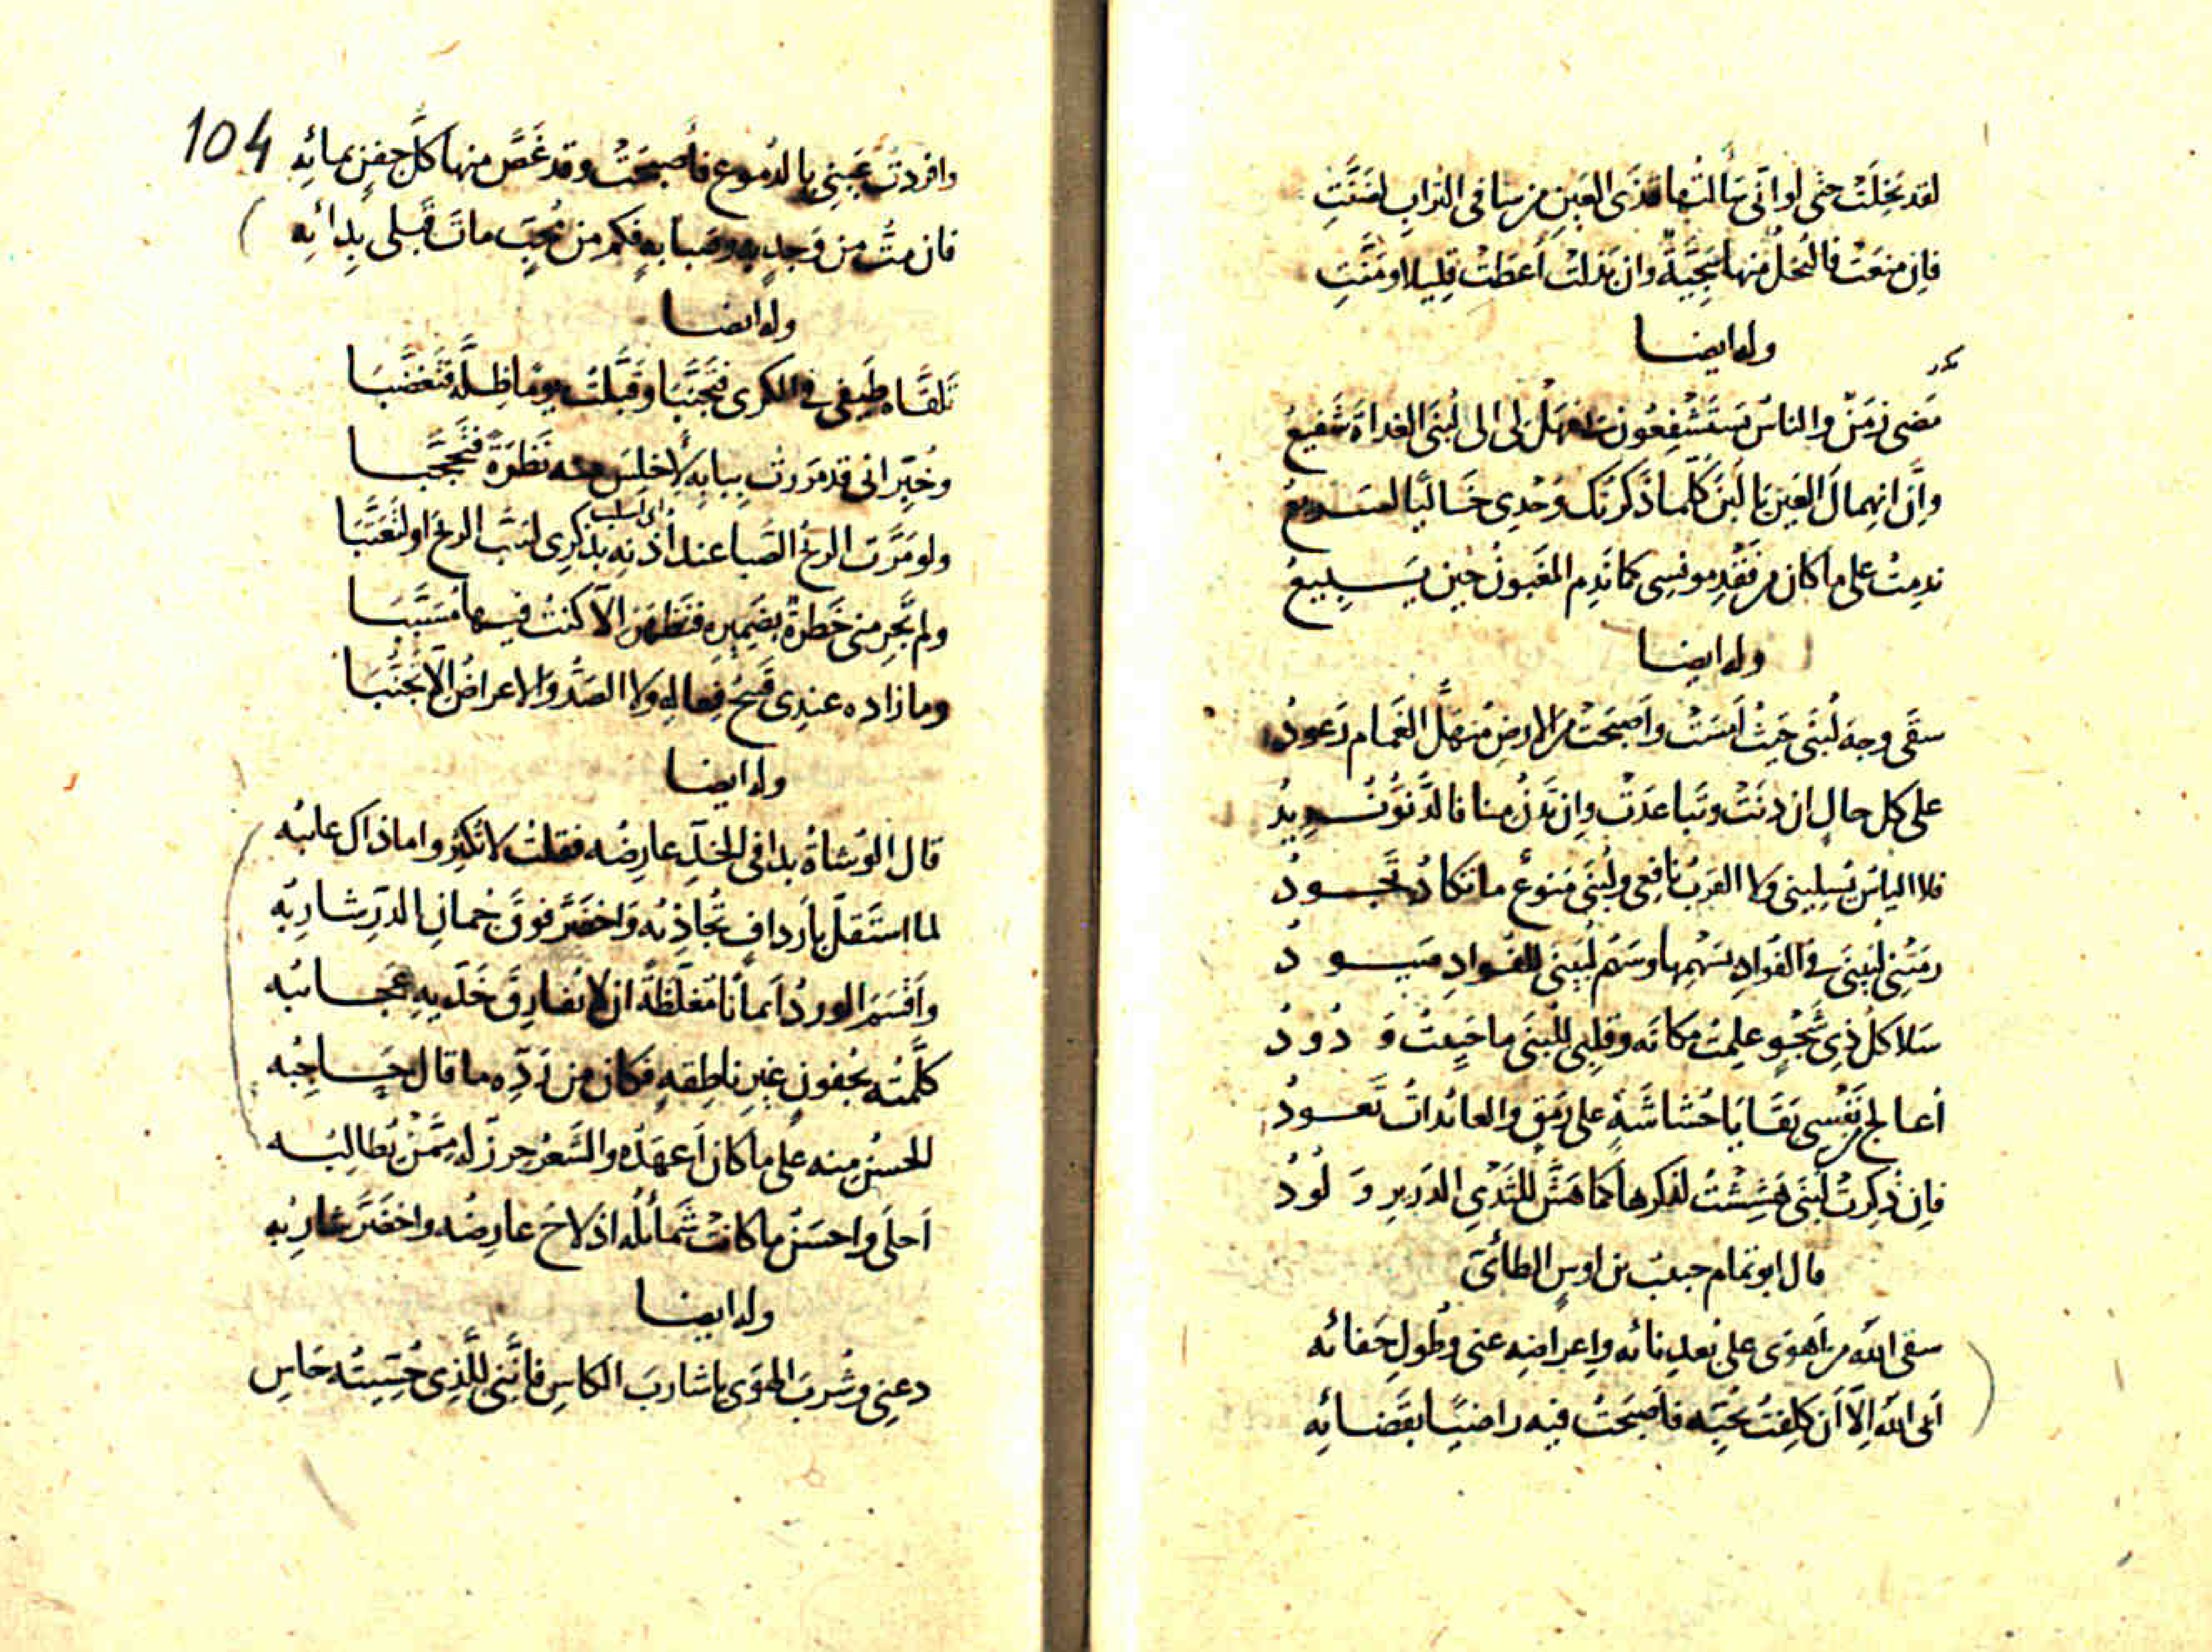 لقد بَخِلَتْ حتى لو انّى سَألتُها قذَى العَينِ من سافى التُرابِ لضَنَّتِ
فان منعَتْ فالبُخلُ منها سَجِيَّةٌ وان بَذلتْ أعطَتْ قليلا ومَنَّتِ
وله ايضا
مَضى زمَنٌ والناسُ يَستَشْفِعُونَ بى فهَلْ لى الى لُبْنَى الغداةَ شَفِيعُ
واِنَّ انهِمالَ العَينِ يا لُبنَ كُلَّما ذكرتُكِ وَحْدِى خَاليًا لسَريعُ
ندِمتُ على ما كان من فَقْدِ مونسِى كما نَدِم المَغبونُ حِينَ يَبِيعُ
وله ايضا
سقَى وجهَ لُبنَى حَيثُ اَمسَتْ واَصبَحَتْ من الارضِ مُنهَلُّ الغَمام رَعودُ
على كل حالٍ ان دنَتْ وتَباعدَتْ وان تَدْنُ منا فالدُنوُّ نُريدُ
فلا الياسُ يُسلِينى وَلا القربُ نافعِى ولُبنَى مَنوعٌ ما تكادُ تَجودُ
رمَتْنِى لُبَينَى فى الفُوادِ بسَهمِها وسَهم لُبَينَى للفُوادِ صَيودُ
سَلا كلُ ذِى شَجْوٍ علِمتُ مكانَه وقلبِى للُبنَى ما حَيِيتُ وَدُودُ
أعالج من نَفْسِى بَقَايَا حُشاشَةٍ على رمَقٍ والعائداتُ تَعودُ
فاِن ذُكِرتْ لُبنَى هَشِشْتُ لذكرها كما هَشَّ للثَدْىِ الدَريرِ وَلُودُ
قال ابو تمام حبيب بن اوسٍ الطائىّ
سقى اللهُ من اَهوَى على بُعدِ نائه واِعراضِه عنى وطُولِ جَفائه
اَبى اللهُ اِلَّا اَن كلِفتُ بحُبِّه فاَصبَحتُ فيه راضيًا بقَضائِه
104
وافردتُ عَينِى بالدُموع فأصبحَتْ وقد غَصَّ منها كلُّ جفنٍ بمائِه
فان متُّ من وَجدٍ به وصَبابةٍ فكم من مُحِبٍّ ماتَ قَبلى بِدائِه
وله ايضا
تَلقَّاه طَيفى فى الكرى فتجَنَّبَا وقَبَّلتُ يومًا ظِلَّه فتَغضَّبَا
وخُبِّر انى قد مَررتُ ببابِه لأخلِسَ منه نَظرَةً فتَحَجَّبا
ولو مَرَّت الريحُ الصَبا عند أُذنِه بذِكرِى لسَبَّ الريحَ او لتَعتَّبَا
ولم تَجْرِ منى خَطرةٌ بضَمِيرِه فتَظهَرَ الَّا كنتُ فيها مُسَبَّبَا
وما زاده عندِى قَبيحُ فِعالِه وَلا الصَدُّ والاعراضُ اِلَّا تحبُّبَا
وله ايضا
قال الوُشاةُ بدا فى الخَدِّ عارِضُه فقلتُ لا تُكثِروا ما ذاك عائبُه
لما استَقلَّ بأردافٍ تُجاذِبُه وَاخضَرَّ فوقَ جُمانِ الدرِّ شاربُه
واَقسَمَ الوردُ اَيمانًا مُغلَّظَةً ان لا تُفارِقَ خَدَّيهِ عَجائبُه
كلَّمتُه بجُفونٍ غيرِ ناطِقهٍ فكان من رَدِّه ما قال حَاجِبُه
الحسنُ منه على ما كان اَعهَدُه والشَعرُ حِرزٌ له مِمَّنْ يُطالِبُه
اَحلَى واحسَنُ ما كانتْ شَمائلُه اذ لاحَ عارِضُه واخضَرَّ شاربُه
وله ايضا
دعنِى وشُربَ الهوَى يا شاربَ الكاسِ فاِنَّنى للَّذِى حُسِّيتُه حَاسِ